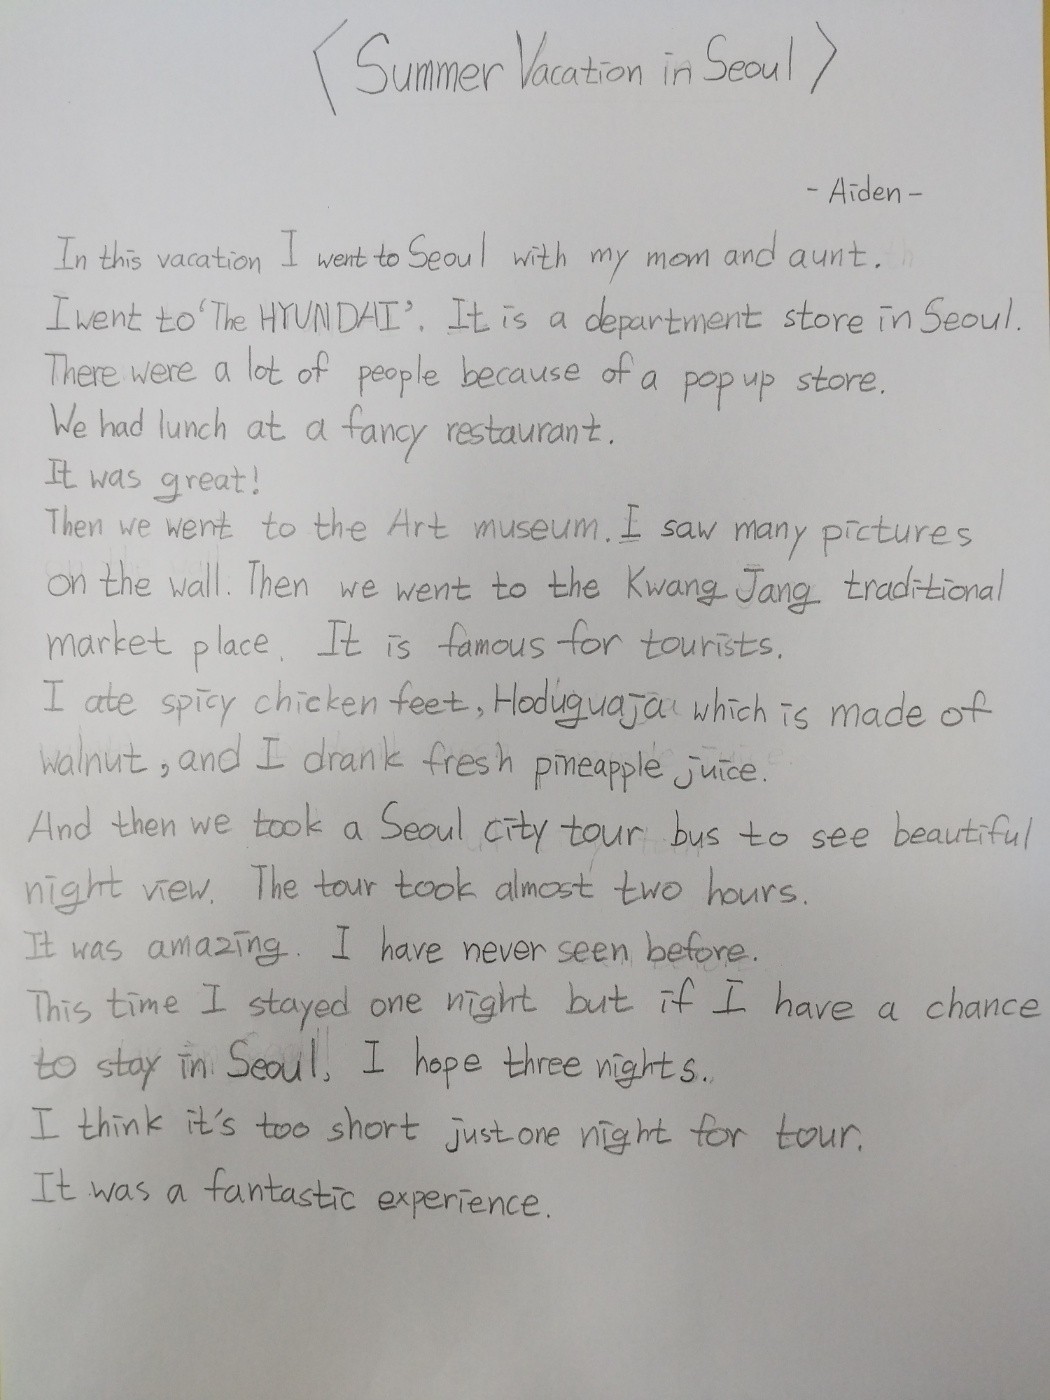 <Summer Vacation in Seoul>
- Aiden -
In this vacation I went to Seoul with my mom and aunt.
I went to 'The HYUNDAI'. It is a department store in Seoul.
There were a lot of people because of a pop up store.
We had lunch at a fancy restaurant.
It was great!
Then we went to the Art museum. I saw many pictures
on the wall. Then we went to the Kwang Jang traditional
market place. It is famous for tourists.
I ate spicy chicken feet, Hoduguaja which is made of
walnut, and I drank fresh pineapple juice.
And then we took a Seoul city tour bus to see beautiful
night view. The tour took almost two hours.
It was amazing. I have never seen before.
This time I stayed one night but if I have a chance
to stay in Seoul, I hope three nights.
I think it's too short just one night for tour.
It was a fantastic experience.